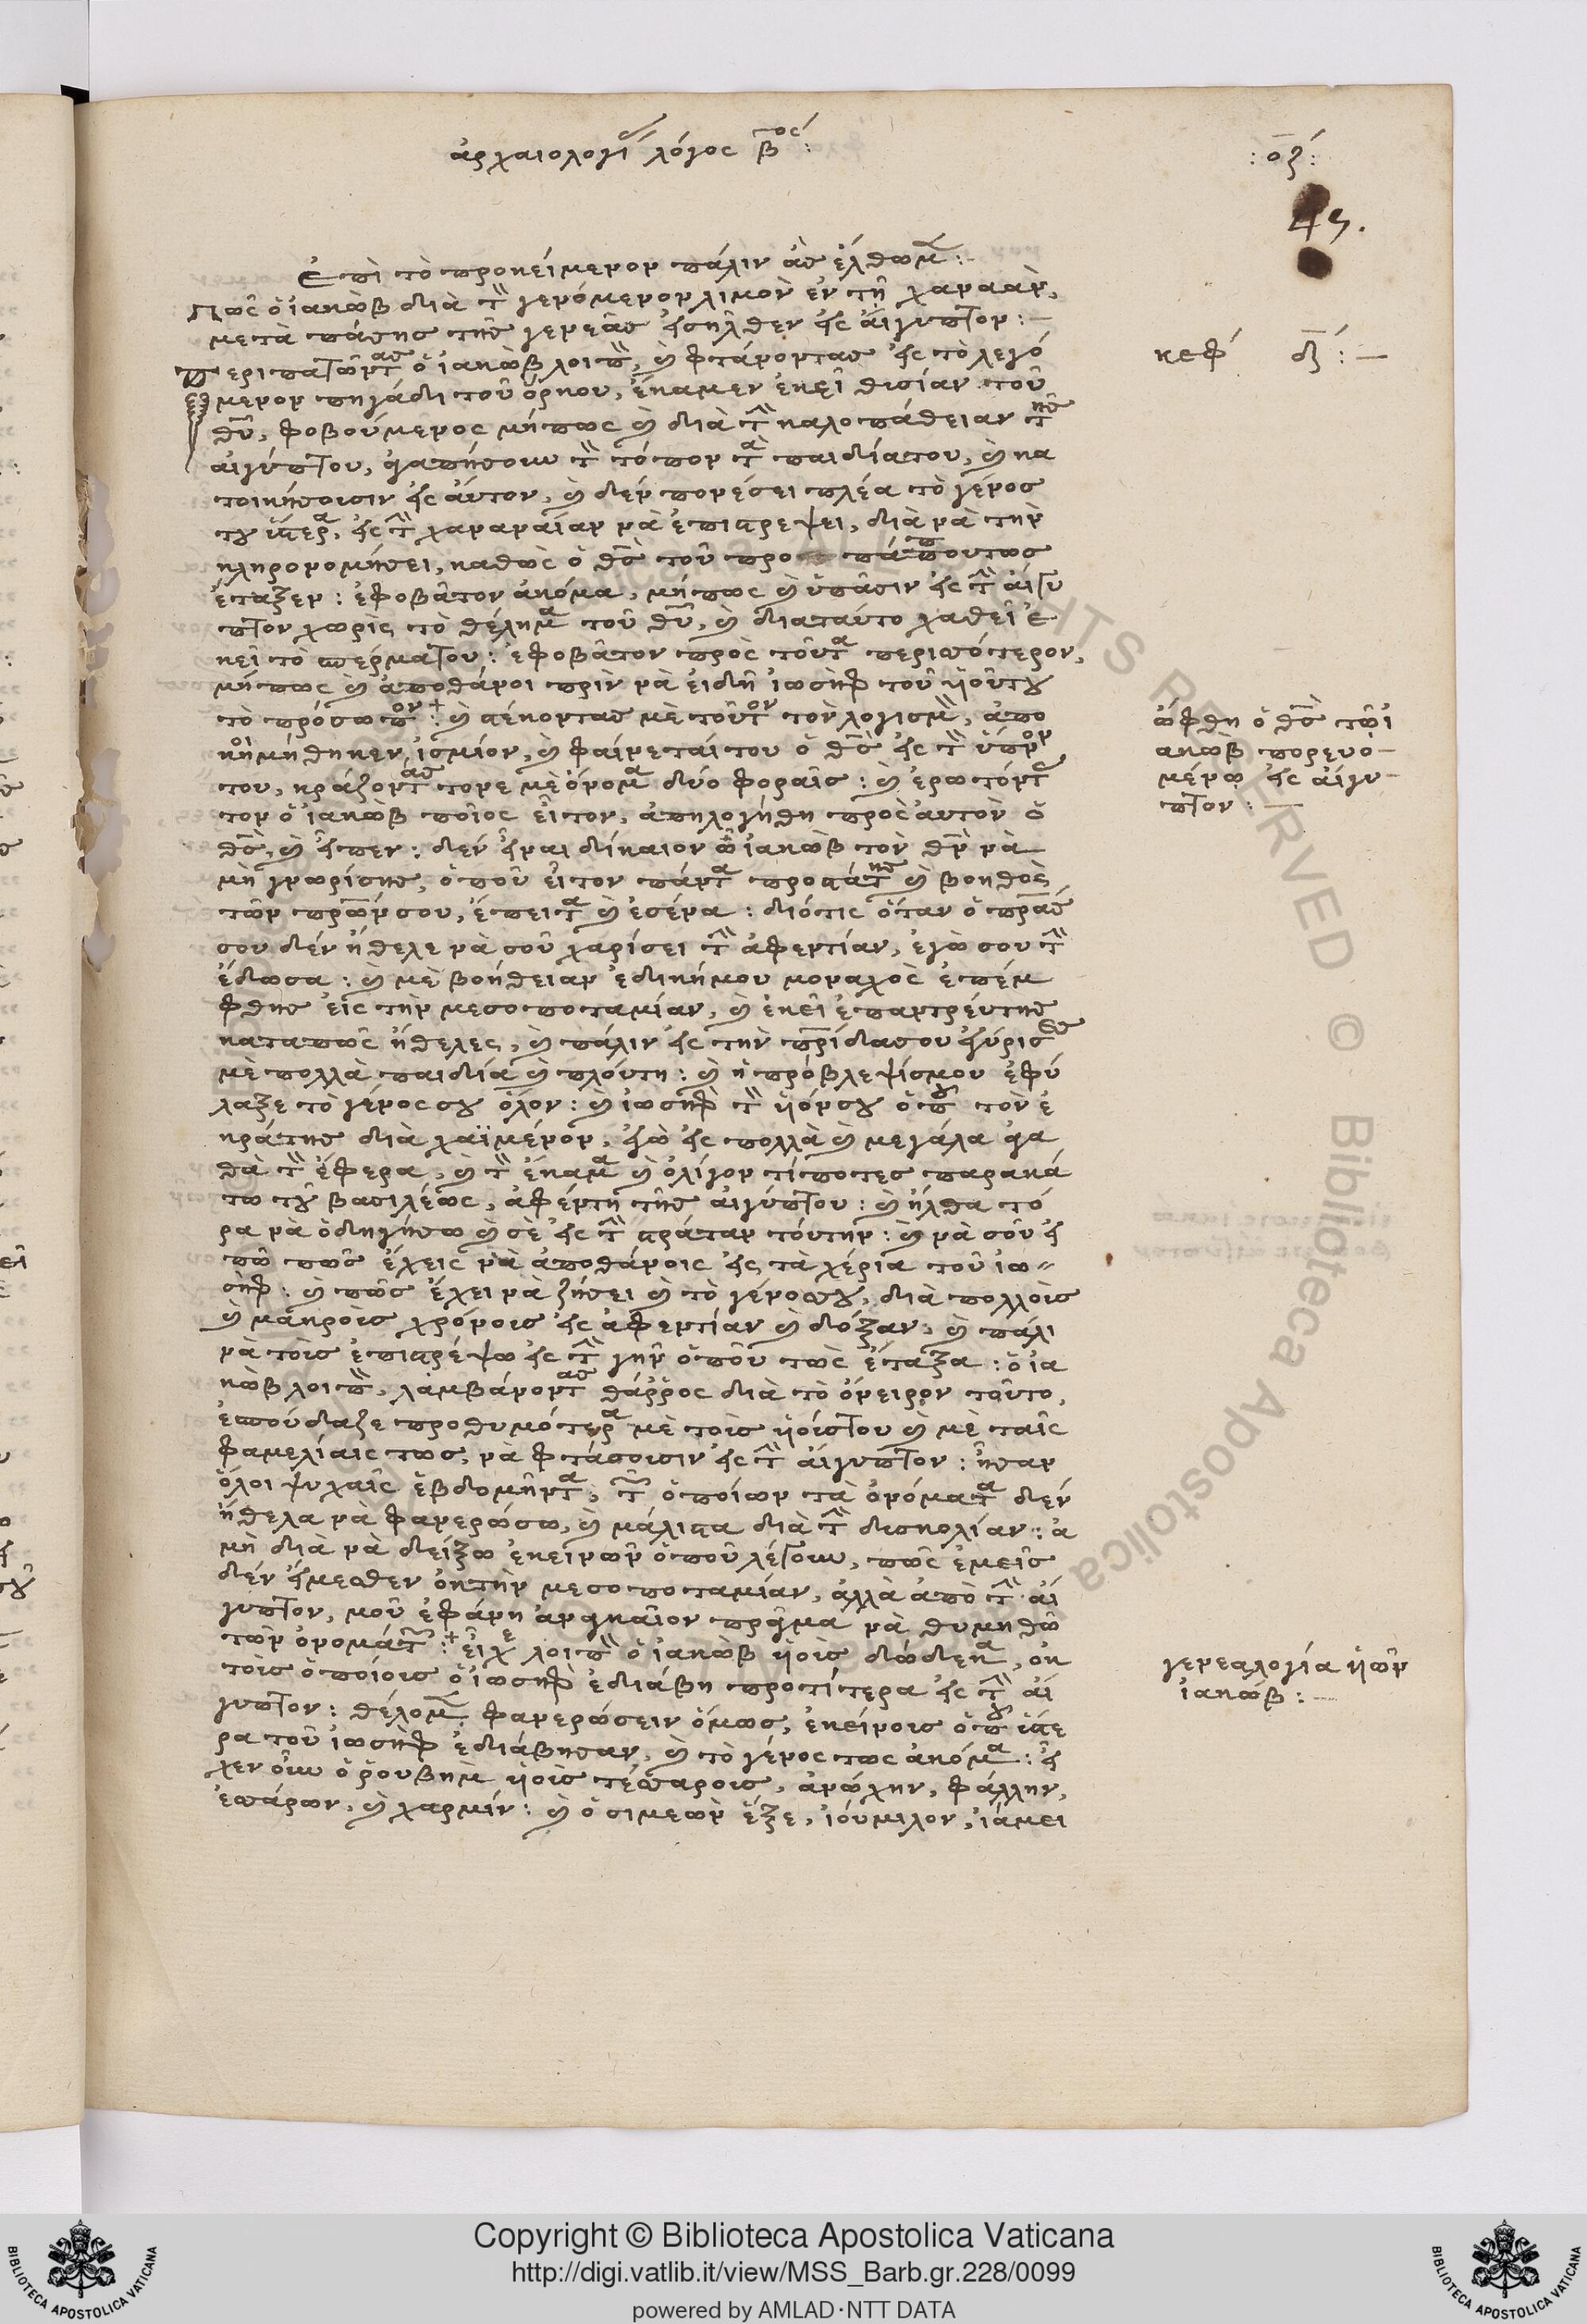 ἀρχαιολογί λόγος β ος:
:οζ:
45.
Ἐπὶ τὸ προκείμενον πάλιν ἀσ ἐλθωμ:
Πῶς ὁ ἰακὼβ διὰ τ γενόμενον λιμὸν ἐν τῇ χαναὰν,
μετὰ πάσης τῆσ γενεᾶσ εἰσῆλθεν εἰς αἴγυπτον:—
κεφ δ:—
περιπατῶντασ ὁ ἰακὼβ λοιπ, καὶ φτάνοντασ εἰς τὸ λεγό
μενον πηγάδι τοῦ ὅρκου, ἔκαμεν ἐκεῖ θισίαν τοῦ
θυ, φοβούμενος μήπως καὶ διὰ τ καλοπάθειαν τησ
αἰγύπτου, ἀγαπήσουν τ τόπον τὰ παιδία του, καὶ κα
τοικήσοισιν εἰς αὐτον, καὶ δεν πορέσει πλέα τὸ γένος
του ὕστερα, εἰς τ χαναναίαν νὰ ἐπιστρέψει, διὰ νὰ τὴν
κληρονομήσει, καθὼς ὁ θς τοῦ προ πάππου τως
ἔταξεν: ἐφοβᾶτον ἀκόμα, μήπως καὶ ὑπᾶσιν εἰς τ αἴγυ
πτον χωρὶς τὸ θέλημα τοῦ θυ, καὶ διαταύτο χαθεῖ ἐ
κεῖ τὸ σπέρμα του: ἐφοβᾶτον πρὸς τοῦτα περισσότερον,
μήπως καὶ ἀποθάνοι πρὶν νὰ εἰδῆ ἰωσὴφ τοῦ υἱοῦ του
τὸ πρόσωπον: καὶ στέκοντασ μὲ τοῦτον τὸν λογισμ, ἀπο
κοιμήθηκεν ἰσμίον, καὶ φαίνεταί του ὁ θς εἰς τ ὕπνον
του, κράζοντάσ τονε μὲ ὄνομα δύο φοραῖς: καὶ ἐρωτόντ
τον ὁ ἰακὼβ ποῖος εἶτον, ἀπηλογήθη πρὸς αὐτὸν ὁ
θς, καὶ εἶπεν: δεν εἶναι δίκαιον ὦ ἰακὼβ τὸν θν νὰ
μὴ γνωρίσησ, ὁποῦ εἶτον πάντα προστάτησ καὶ βοηθὸς
τῶν πρων σου, ἔπειτα καὶ ἐσένα: διότις ὅταν ὁ πρασ
σου δέν ἤθελε νὰ σοῦ χαρίσει τ ἀφεντίαν, ἐγὼ σου τ
ἔδωσα: καὶ μὲ βοήθειαν ἐδικήμου μοναχὸς ἐπέμ
φθησ εἰς τὴν μεσοποταμίαν, καὶ ἐκεῖ ἐπαντρέυτησ
καταπῶς ἤθελες, καὶ πάλιν εἰς τὴν πρίδα σου ἐγύρισεσ
μὲ πολλὰ παιδία καὶ πλούτη: καὶ ἡ πρόβλεψίς μου ἐφύ
λαξε τὸ γένος σου ὅλον: καὶ ἰωσὴφ τ υἱόν σου ὁπου τὸν ἐ
κράτησ διὰ χαϊμένον, ἐγὼ εἰς πολλὰ καὶ μεγάλα ἀγα
θὰ τ ἔφερα, καὶ τ ἔκαμα καὶ ὀλίγον τίποτες παρακά
τω τοῦ βασιλέως, ἀφέντη τῆσ αἰγύπτου: καὶ ἦλθα τό
ρα νὰ ὁδηγήσω καὶ σὲ εἰς τ στράταν τούτην: καὶ νὰ σοῦ εἰ
πῶ πῶς ἔχεις νὰ ἀποθάνοις εἰς τὰ χέρια τοῦ ἰω
σὴφ: καὶ πῶς ἔχει νὰ ζήσει καὶ τὸ γένος σου, διὰ πολλοὶς
καὶ μακροὶς χρόνοις εἰς ἀφεντίαν καὶ δόξαν: καὶ πάλι
νὰ τοὶς ἐπιστρέψω εἰς τ γην ὁποῦ τῶς ἔταξα: ὁ ἰα
κὼβ λοιπ, λαμβάνοντασ θάρρος διὰ τὸ ὄνειρον τοῦτο,
ἐσπούδαζε προθυμότερα μὲ τοὶς υἱοίς του καὶ μὲ ταῖς
φαμελίαις τως, νὰ φτάσοισιν εἰς τ αἴγυπτον: ἦσαν
ὅλοι ψυχαῖς ἑβδομῆντα, τ ὁποίων τὰ ὀνόματα δεν
ἤθελα νὰ φανερώσω, καὶ μάλιστα διὰ τ δισκολίαν: ἀ
μὴ διὰ νὰ δείξω ἐκεινῶν ὁποῦ λέγουν, πῶς ἐμεῖς
δεν εἴμεσθεν ὀκτὴν μεσοποταμίαν, ἀλλὰ ἀπὸ τ αἴ
γυπτον, μοῦ ἐφάνη ἀναγκαῖον πρᾶγμα νὰ θυμηθῶ
τῶν ὀνομάτ: εἶχε λοιπ ὁ ἰακὼβ υἱοὶς δώδεκα, ὀκ
τοὶς ὁποίοις ὁ ἰωσὴφ ἐδιάβη προτίτερα εἰς τ αἴ
γυπτον: θέλομ φανερώσειν ὅμως, ἐκείνοις ὁπου ὕστε
ρα τοῦ ἰωσὴφ ἐδιάβησαν, καὶ τὸ γένος τως ἀκόμα: εἶ
χεν οὖν ὁ ῥουβὴμ υἱοὶς τέσσαροις, ἀνώχην, φάλλην,
ἐσσάρων, καὶ χαρμίν: καὶ ὁ σιμεὼν ἕξε, ἰούμιλον, ἰάμει
ὤφθη ὁ θς τῷ ἰ
ακὼβ πορευο
μένῳ εἰς αἴγυ
πτον:—
γενεαλογία υἱῶν
ἰακώβ:—
Copyright © Biblioteca Apostolica Vaticana
http://digi.vatlib.it/view/MSS_Barb.gr.228/0099
powered by AMLAD·NTT DATA
BIBLIOTECA APOSTOLICA VATICANA
BIBLIOTECA APOSTOLICA VATICANA